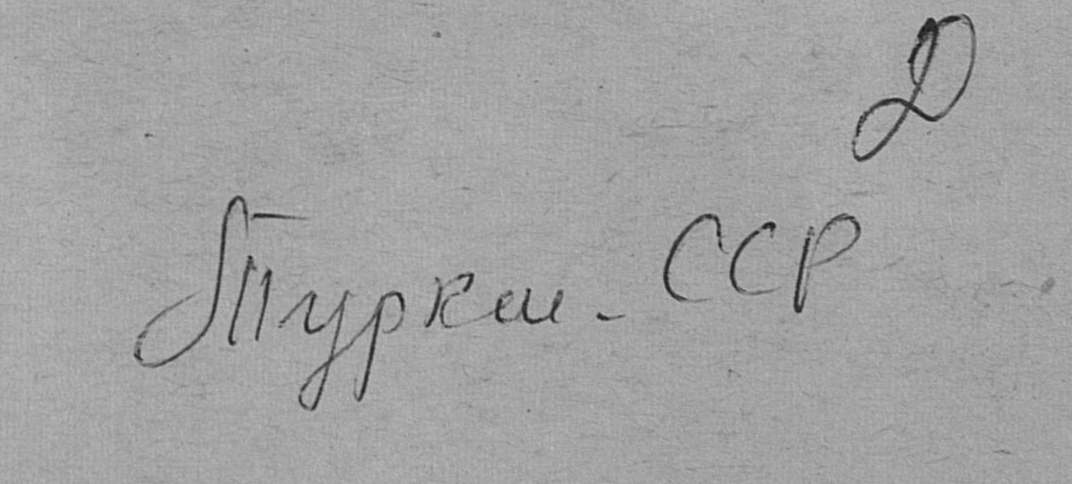 Д
Туркм. ССР